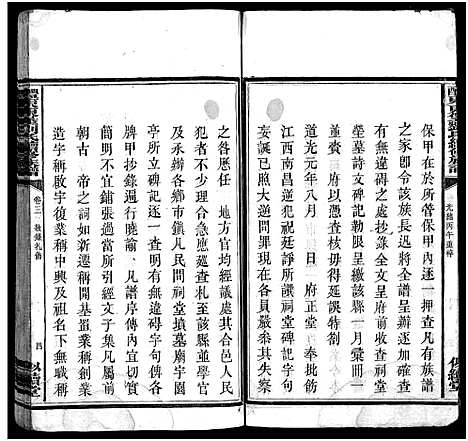 保甲在於所管保甲內逐一押查凡有族譜
之家即令該族長迅將全譜呈辦逐加查閱
有無違碍之處抄錄全文呈官府查審至祠
塋墓詩文碑記勒眼呈繳該縣一月彙冊一
蓳賫 府以憑查核毋得延誤特劄
道光元年八月 日 府正堂 奉批飭
江西南昌違犯延諍所讖祠堂碑記誥詞狂
妄誕已照大逆問罪之各員嚴叅其失察
之咎歷任 地方官均經議處其合邑人民
及承辦者理合急應巡查札至該縣並學官
查明各鄉市鎮凡民間祠堂墳墓廟宇園
亭所立碑記磨匾俱有無違碍字句俾各
牌甲抄錄遍行曉諭凡譜序傳內宜切實
簡明不宜鋪張過當所引經文子集凡屬前
朝古 帝之詞如新遷稱開基置業稱創業
造字稱啟宇復業稱中興及祖名下無職稱
光緒丙午重梓
卷三
四